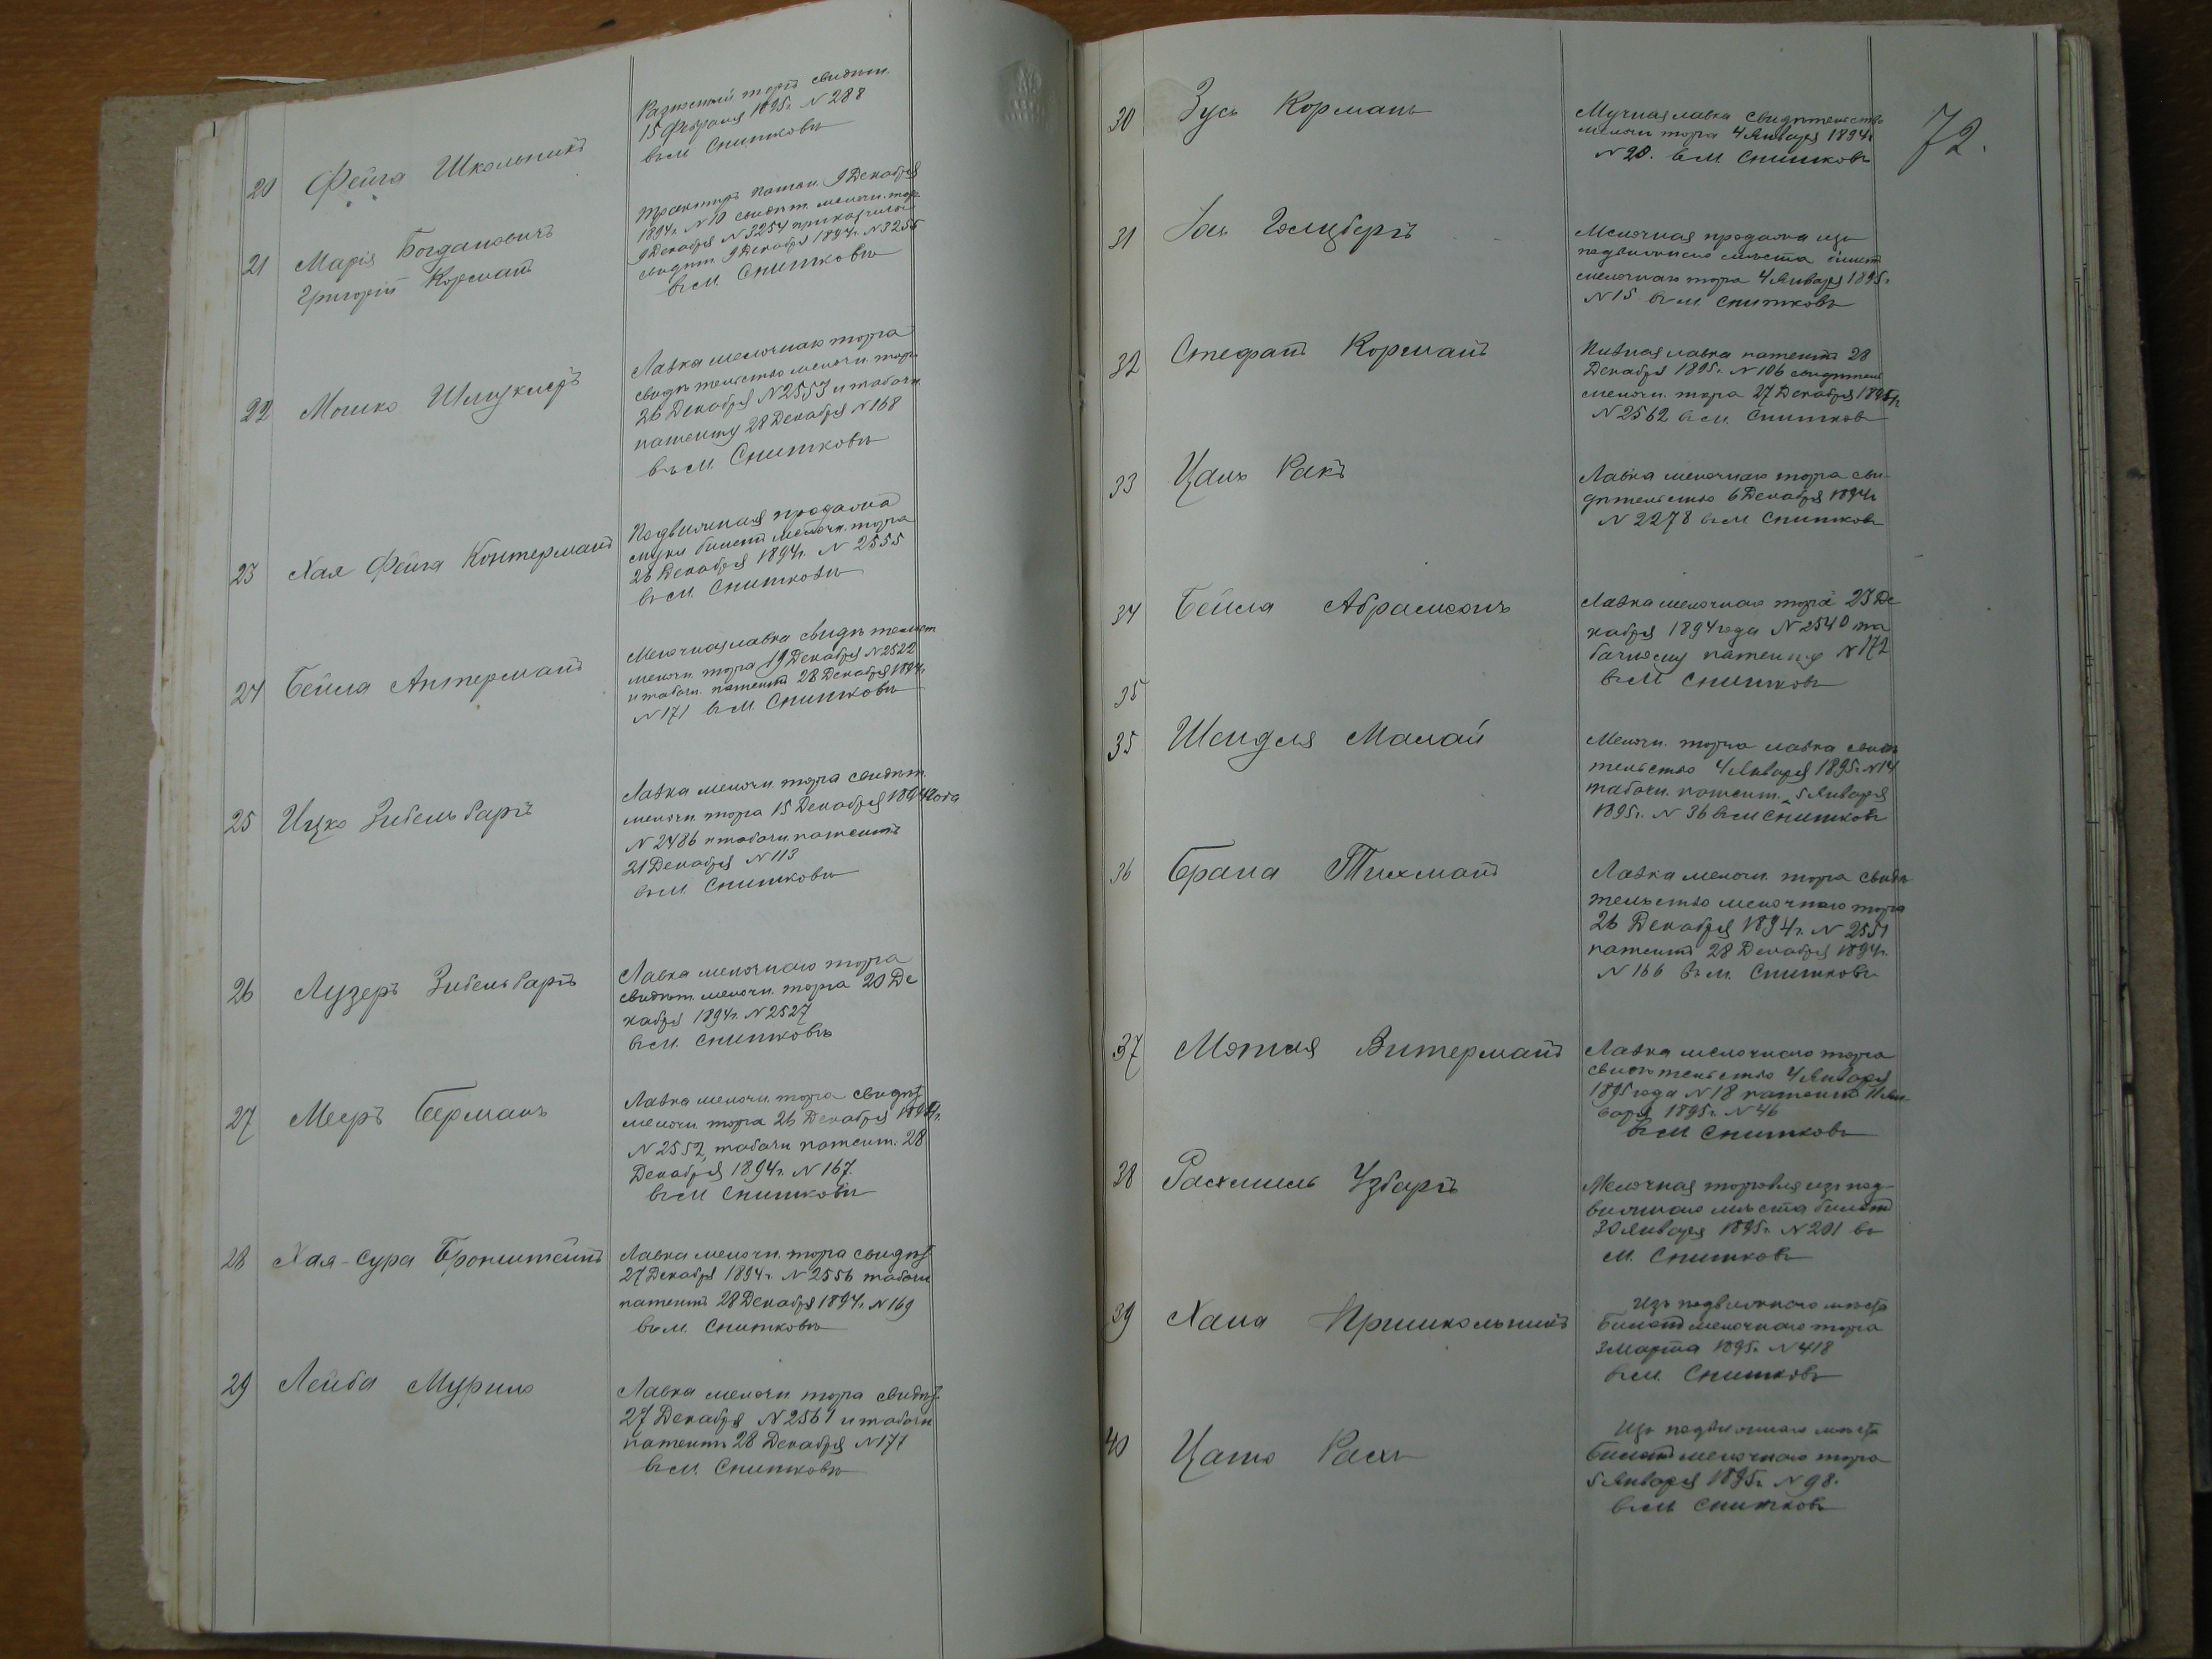 20 Фейга Школьникъ
Разносный торгъ свидѣт.
15 Февраля 1895г. N 288
въ м Снитковѣ
21 Марія Богдановичъ
Григорій Корманъ
Трактиръ патен. 9 Декабря
1894г. N 10 свидѣт. мелочн. торга
9 Декабря N 3254 прикащичье
свидѣт. 9 Декабря 1894г. N 3255
въ м. Снитковѣ
22 Мошко
Лавка мелочнаго торга
свидѣтельство мелочн. торг.
26 Декабря N 2553 и табачн.
патенту 28 Декабря N 168
въ м. Снитковѣ
23 Хая Фейга Контерманъ
Подвижная продажа
муки билетъ мелочн. торга
26 Декабря 1894г. N 2555
въ м. Снитковѣ
24 Бейла Антерманъ
Мелочная лавка свидѣтельст
мелочн. торга 19 Декабря N 2522
и табачн. патентъ 28 Декабря 1894г.
N 171 въ м. Снитковѣ
25 Ицко Зибельбаргъ
Лавка мелочн. торга свидѣт.
мелочн. торга 15 Декабря 1894 года
N 2486 и табачн. патентъ
21 Декабря N 113
въ м. Снитковѣ
26 Лузеръ Зибельбаргъ
Лавка мелочнаго торга
свидѣт. мелочн. торга 20 Де
кабря 1894г. N 2527
въ м. Снитковѣ
27 Мееръ Берманъ
Лавка мелочн. торга свидѣт
мелочн торга 26 Декабря 1894г.
N 2552, табачн патент. 28
Декабря 1894г. N 167.
въ м Снитковѣ
28 Хая-Сура Бронштейнъ
Лавка мелочн. торга свидѣт
27 Декабря 1894г. N 2556 табачн
патентъ 28 Декабря 1894г. N 169
въ м. Снитковѣ
29 Лейба Мурило
Лавка мелочн торга свидѣт.
27 Декабря N 2561 и табачн
патентъ 28 Декабря N 177
въ м. Снитковѣ
72.
30 Зусь Корманъ
Мучная лавка свидѣтельство
мелочн торга 4 Января 1894г
N 20. въ м Снитковѣ
31 Гольцбергъ
Мелочная продажа изъ
подвижнаго мѣста билетъ
мелочнаго торга 4 Января 1895г.
N 15 въ м. Снитковѣ
32 Стефанъ Корманъ
Пивная лавка патентъ 28
Декабря 1895г. N 106 свидѣтель
мелочн. торга 27 Декабря 1895г.
N 2562 въ м. Снитков
33 Цаль Ракъ
Лавка мелочнаго торга сви-
дѣтельство 6 Декабря 1894г
N 2278 въ м Снитковѣ
34 Бейла Абрамсонъ
Лавка мелочнаго торга 23 Де
кабря 1894 года N 2540 та
бачному патенту N 172
въ м Снитковѣ
35
35 Шейдля Малай
Мелочн. торга лавка свидѣ
тельство 4 Января 1895г. N 14
табачн. патент. 5 Января
1895г. N 36 въ м Снитковѣ
36 Брана Тихманъ
Лавка мелочн. торга свидѣ
тельство мелочнаго торга
26 Декабря 1894г. N 2551
патентъ 28 Декабря 1894г.
N 166 въ м. Снитковѣ
37 Мотля Витерманъ
Лавка мелочнаго торга
свидѣтельство 4 Января
1895 года N 18 патентъ 11 Ян-
варя 1895г. N 46
въ м Снитковѣ
38 Рахмиль Узбаргъ
Мелочная торговля изъ под-
вижнаго мѣста билетъ
30 Января 1895г. N 201 въ
м. Снитковѣ
39 Хана Пришкольникъ
Изъ подвижнаго мѣста
билетъ мелочнаго торга
3 Марта 1895г. N 418
въ м. Снитковѣ
40
Изъ подвижнаго мѣста
билетъ мелочнаго торга
5 Января 1895г. N 98.
въ м. Снитковѣ